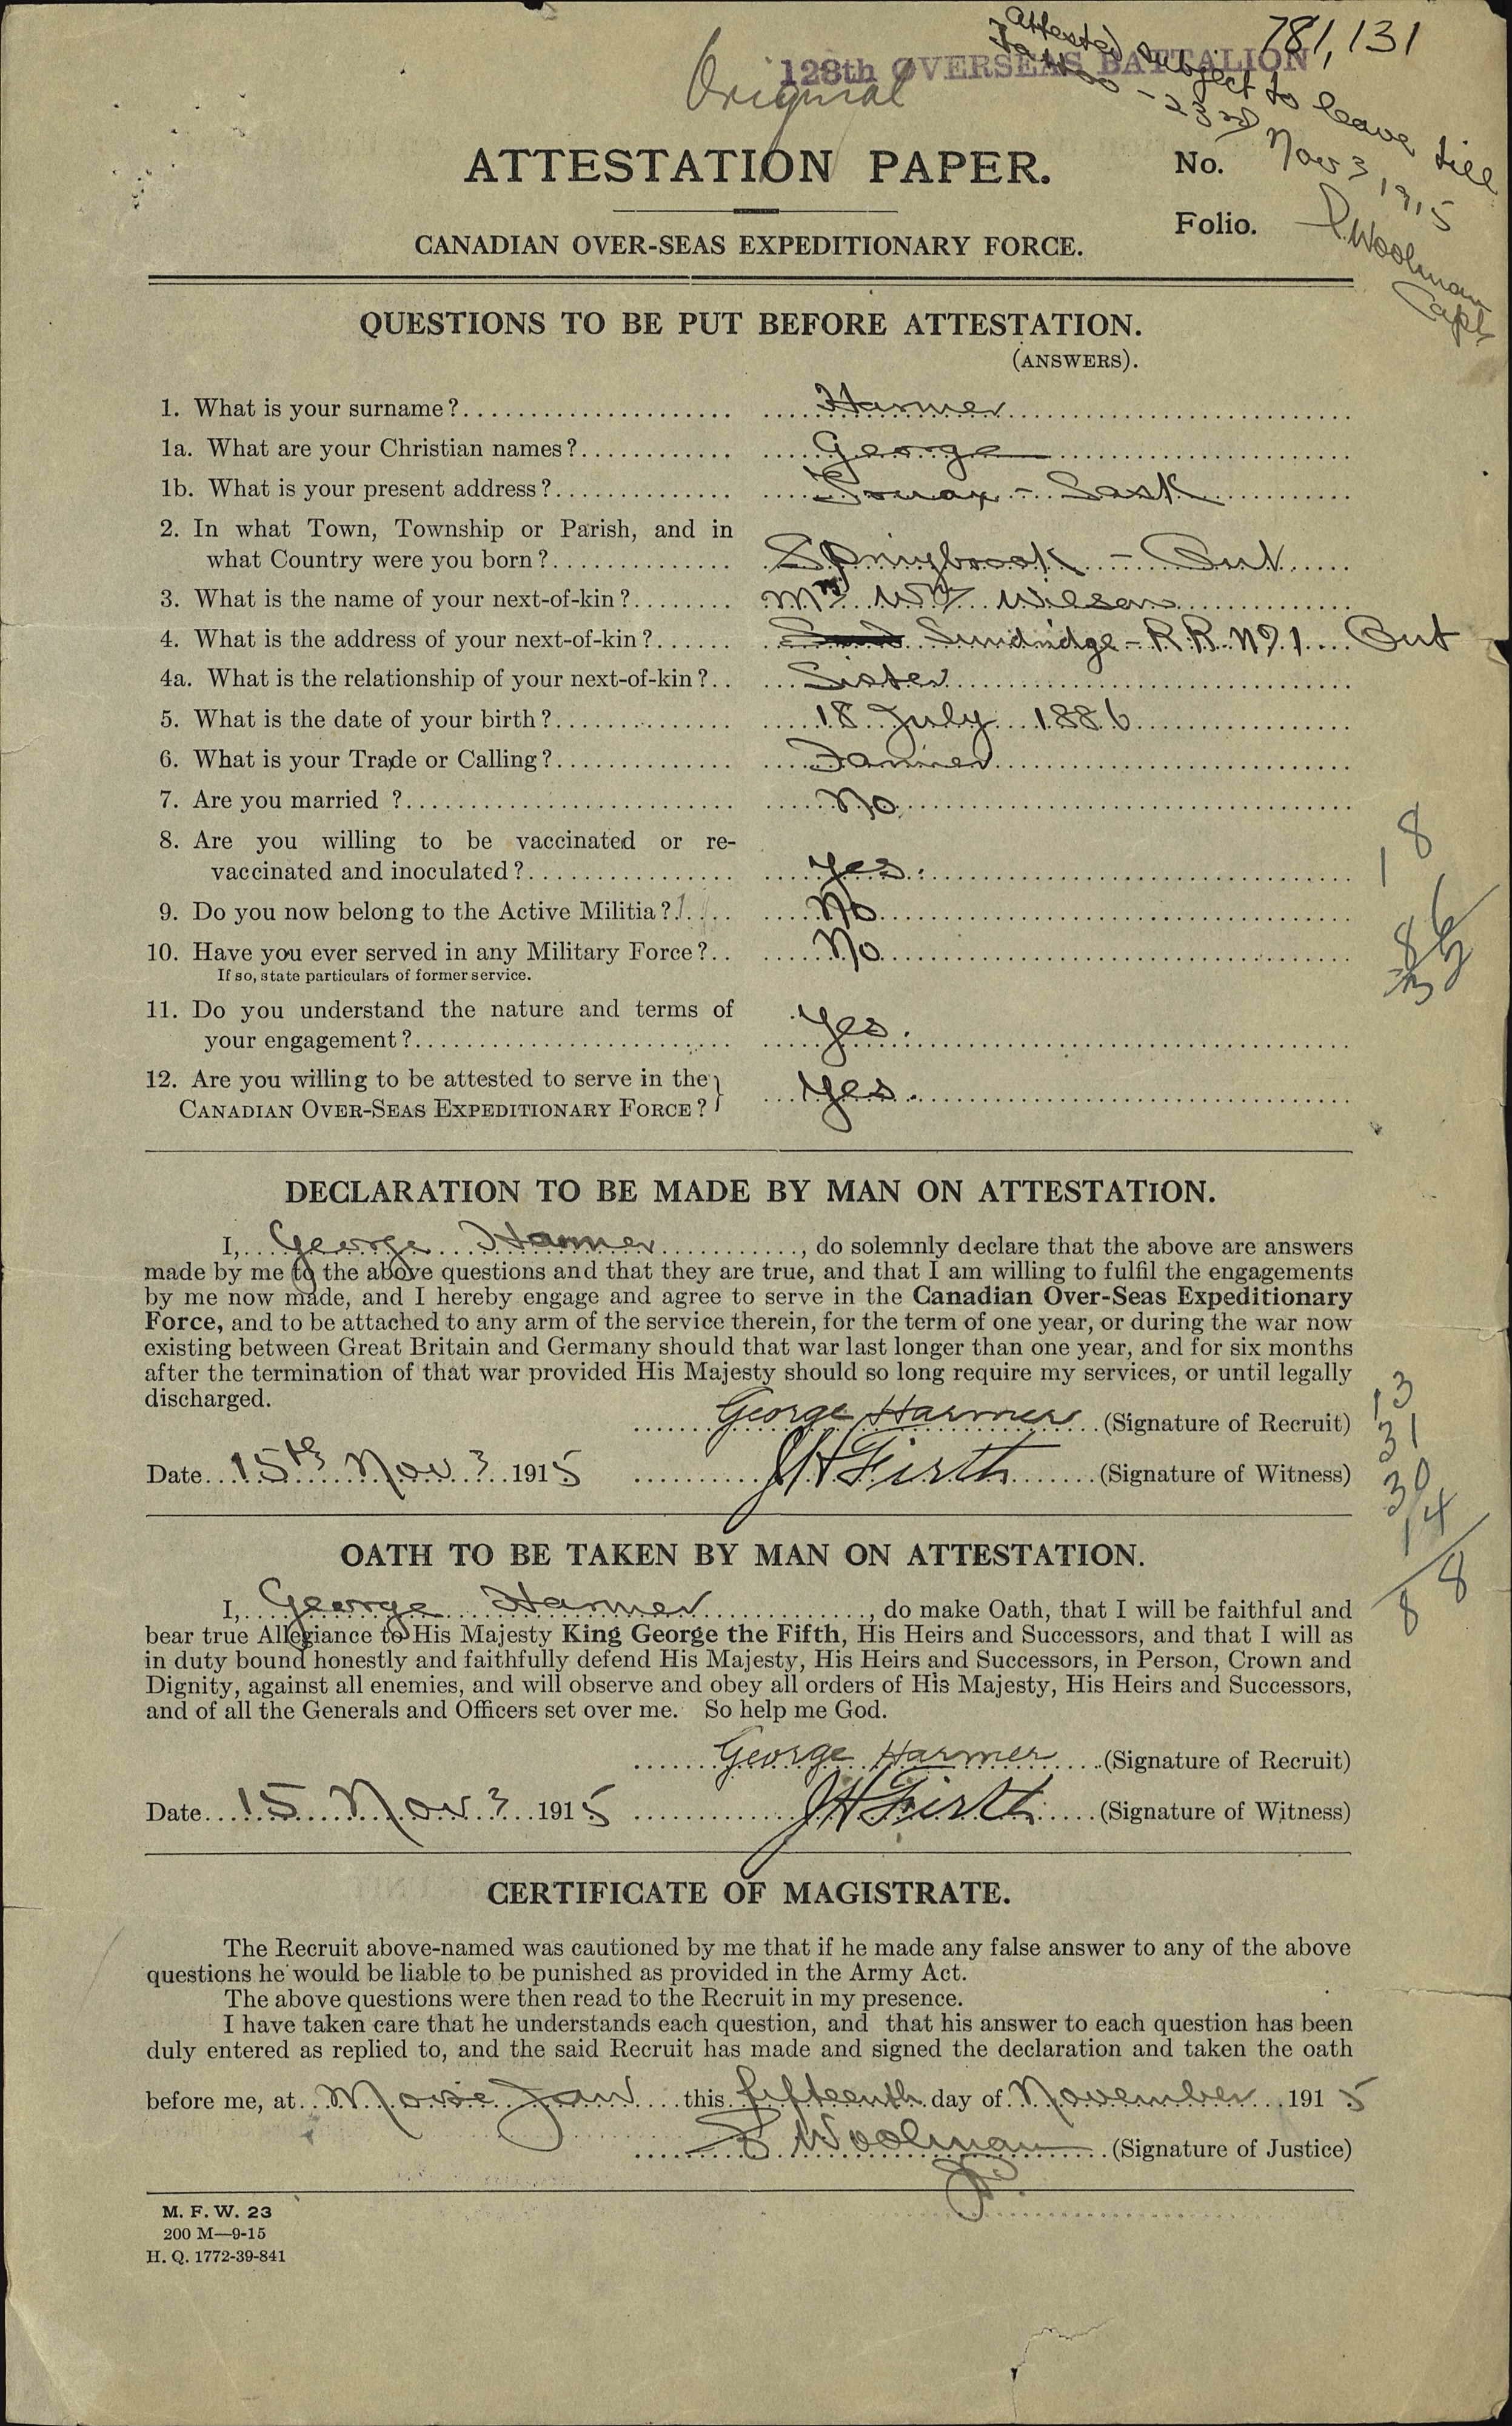 781,131
128th OVERSEAS BATTALION
Original
Attested subject to leave till
23rd Nov 3, 1915
Woolman
Capt
ATTESTATION PAPER.
No.
Folio.
CANADIAN OVER-SEAS EXPEDITIONARY FORCE.
QUESTIONS TO BE PUT BEFORE ATTESTATION.
(ANSWERS).
1. What is your surname? Harmer
1a. What are your Christian names? George
1b. What is your present address? - Sask
2. In what Town, Township or Parish, and in
what Country were you born? Springbrook - Ont
3. What is the name of your next-of-kin? Mrs Wm Wilson
4. What is the address of your next-of-kin? Sundridge - R.R. No 1 Ont
4a. What is the relationship of your next-of-kin? Sister
5. What is the date of your birth? 18 July 1886
6. What is your Trade or Calling? Farmer
7. Are you married ? No
8. Are you willing to be vaccinated or re-
vaccinated and inoculated? Yes.
9. Do you now belong to the Active Militia? No
10. Have you ever served in any Military Force? No
If so, state particulars of former service.
11. Do you understand the nature and terms of
your engagement? Yes.
12. Are you willing to be attested to serve in the
CANADIAN OVER-SEAS EXPEDITIONARY FORCE? } Yes.
18
86
DECLARATION TO BE MADE BY MAN ON ATTESTATION.
I, George Harmer, do solemnly declare that the above are answers
made by me to the above questions and that they are true, and that I am willing to fulfil the engagements
by me now made, and I hereby engage and agree to serve in the Canadian Over-Seas Expeditionary
Force, and to be attached to any arm of the service therein, for the term of one year, or during the war now
existing between Great Britain and Germany should that war last longer than one year, and for six months
after the termination of that war provided His Majesty should so long require my services, or until legally
discharged.
George Harmer (Signature of Recruit)
Date 15th Nov 3 1915 J H Firth (Signature of Witness)
13
31
30
14
88
OATH TO BE TAKEN BY MAN ON ATTESTATION.
I, George Harmer, do make Oath, that I will be faithful and
bear true Allegiance to His Majesty King George the Fifth, His Heirs and Successors, and that I will as
in duty bound honestly and faithfully defend His Majesty, His Heirs and Successors, in Person, Crown and
Dignity, against all enemies, and will observe and obey all orders of His Majesty, His Heirs and Successors,
and of all the Generals and Officers set over me. So help me God.
George Harmer (Signature of Recruit)
Date 15 Nov 3 1915 J H Firth (Signature of Witness)
CERTIFICATE OF MAGISTRATE.
The Recruit above-named was cautioned by me that if he made any false answer to any of the above
questions he would be liable to be punished as provided in the Army Act.
The above questions were then read to the Recruit in my presence.
I have taken care that he understands each question, and that his answer to each question has been
duly entered as replied to, and the said Recruit has made and signed the declaration and taken the oath
before me, at Moose Jaw this fifteenth day of November 1915
Woolman (Signature of Justice)
M. F. W. 23
200 M—9-15
H. Q. 1772-39-841